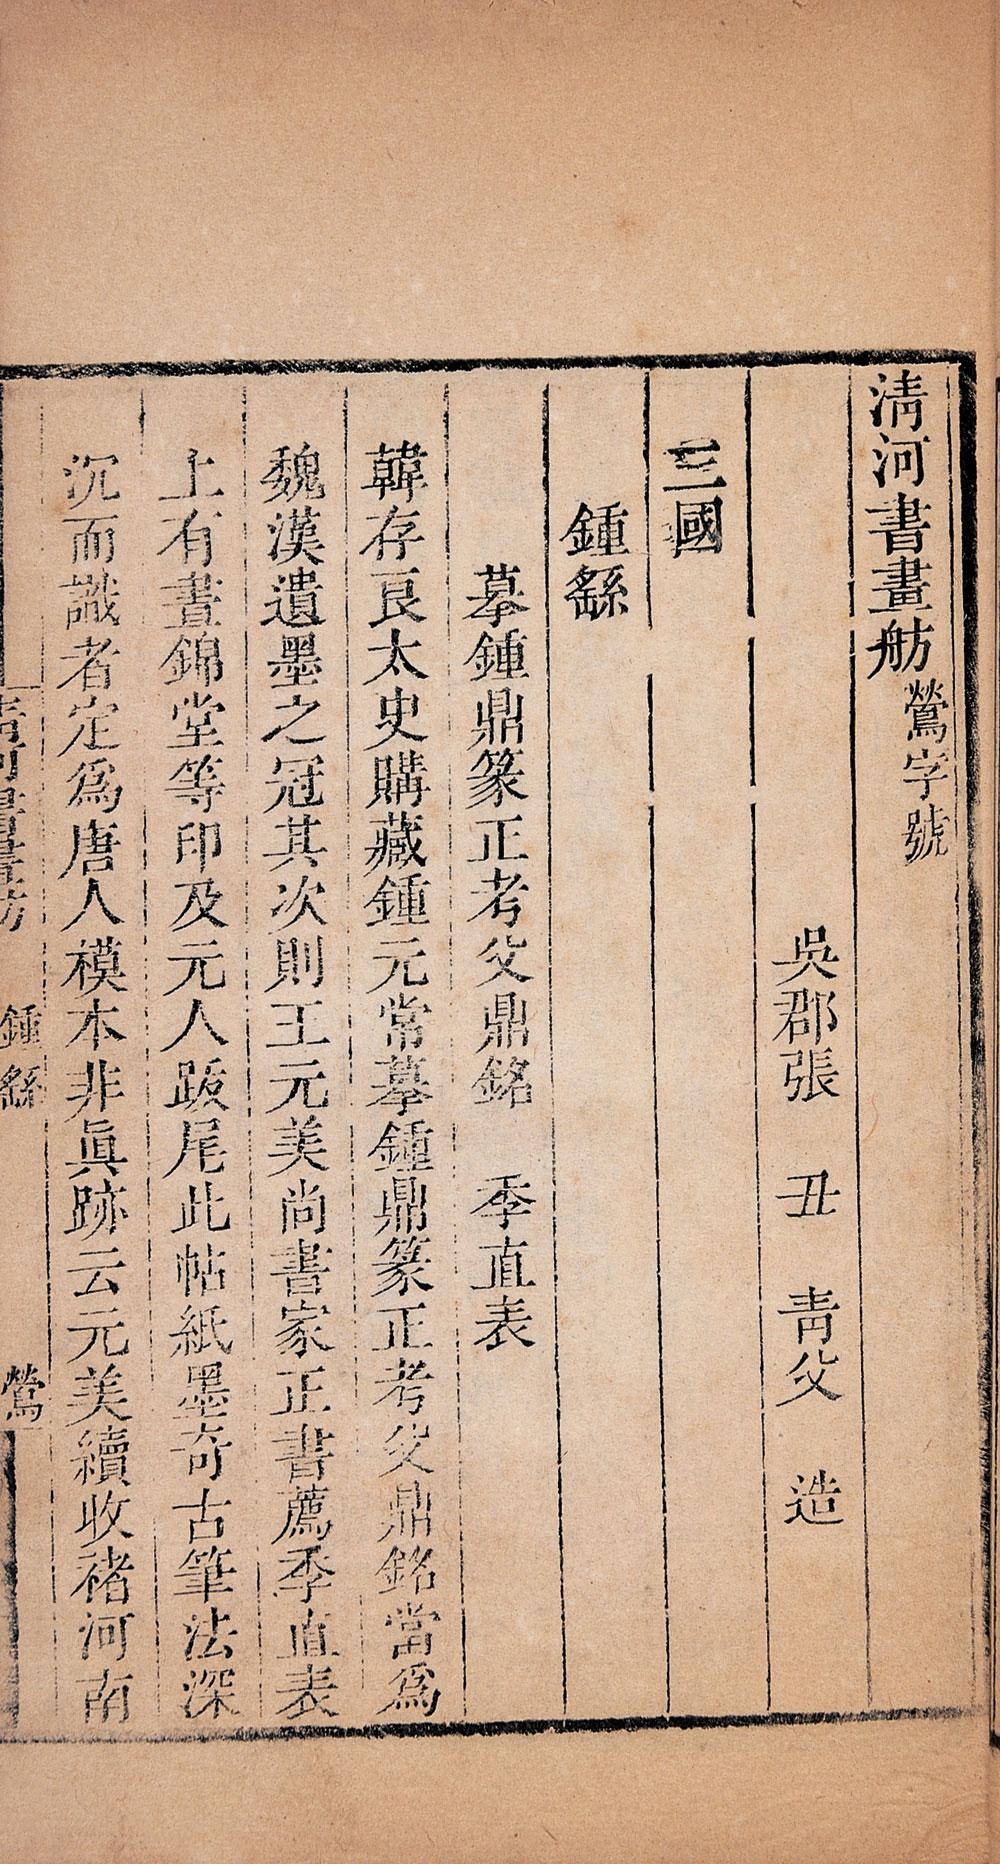 清河書畫舫鶯字號
吳郡張 丑 靑父 造
三國
鍾繇
摹鍾鼎篆正考父鼎銘 季直表
韓存良太史購藏鍾元常摹鍾鼎篆正考父鼎銘當爲
魏漢遺墨之冠其次則王元美尚書家正書薦季直表
上有晝錦堂等印及元人跋尾此帖紙墨奇古筆法深
沉而識者定爲唐人模本非眞跡云元美續收禇河南
清河書畫舫 鍾繇 鶯